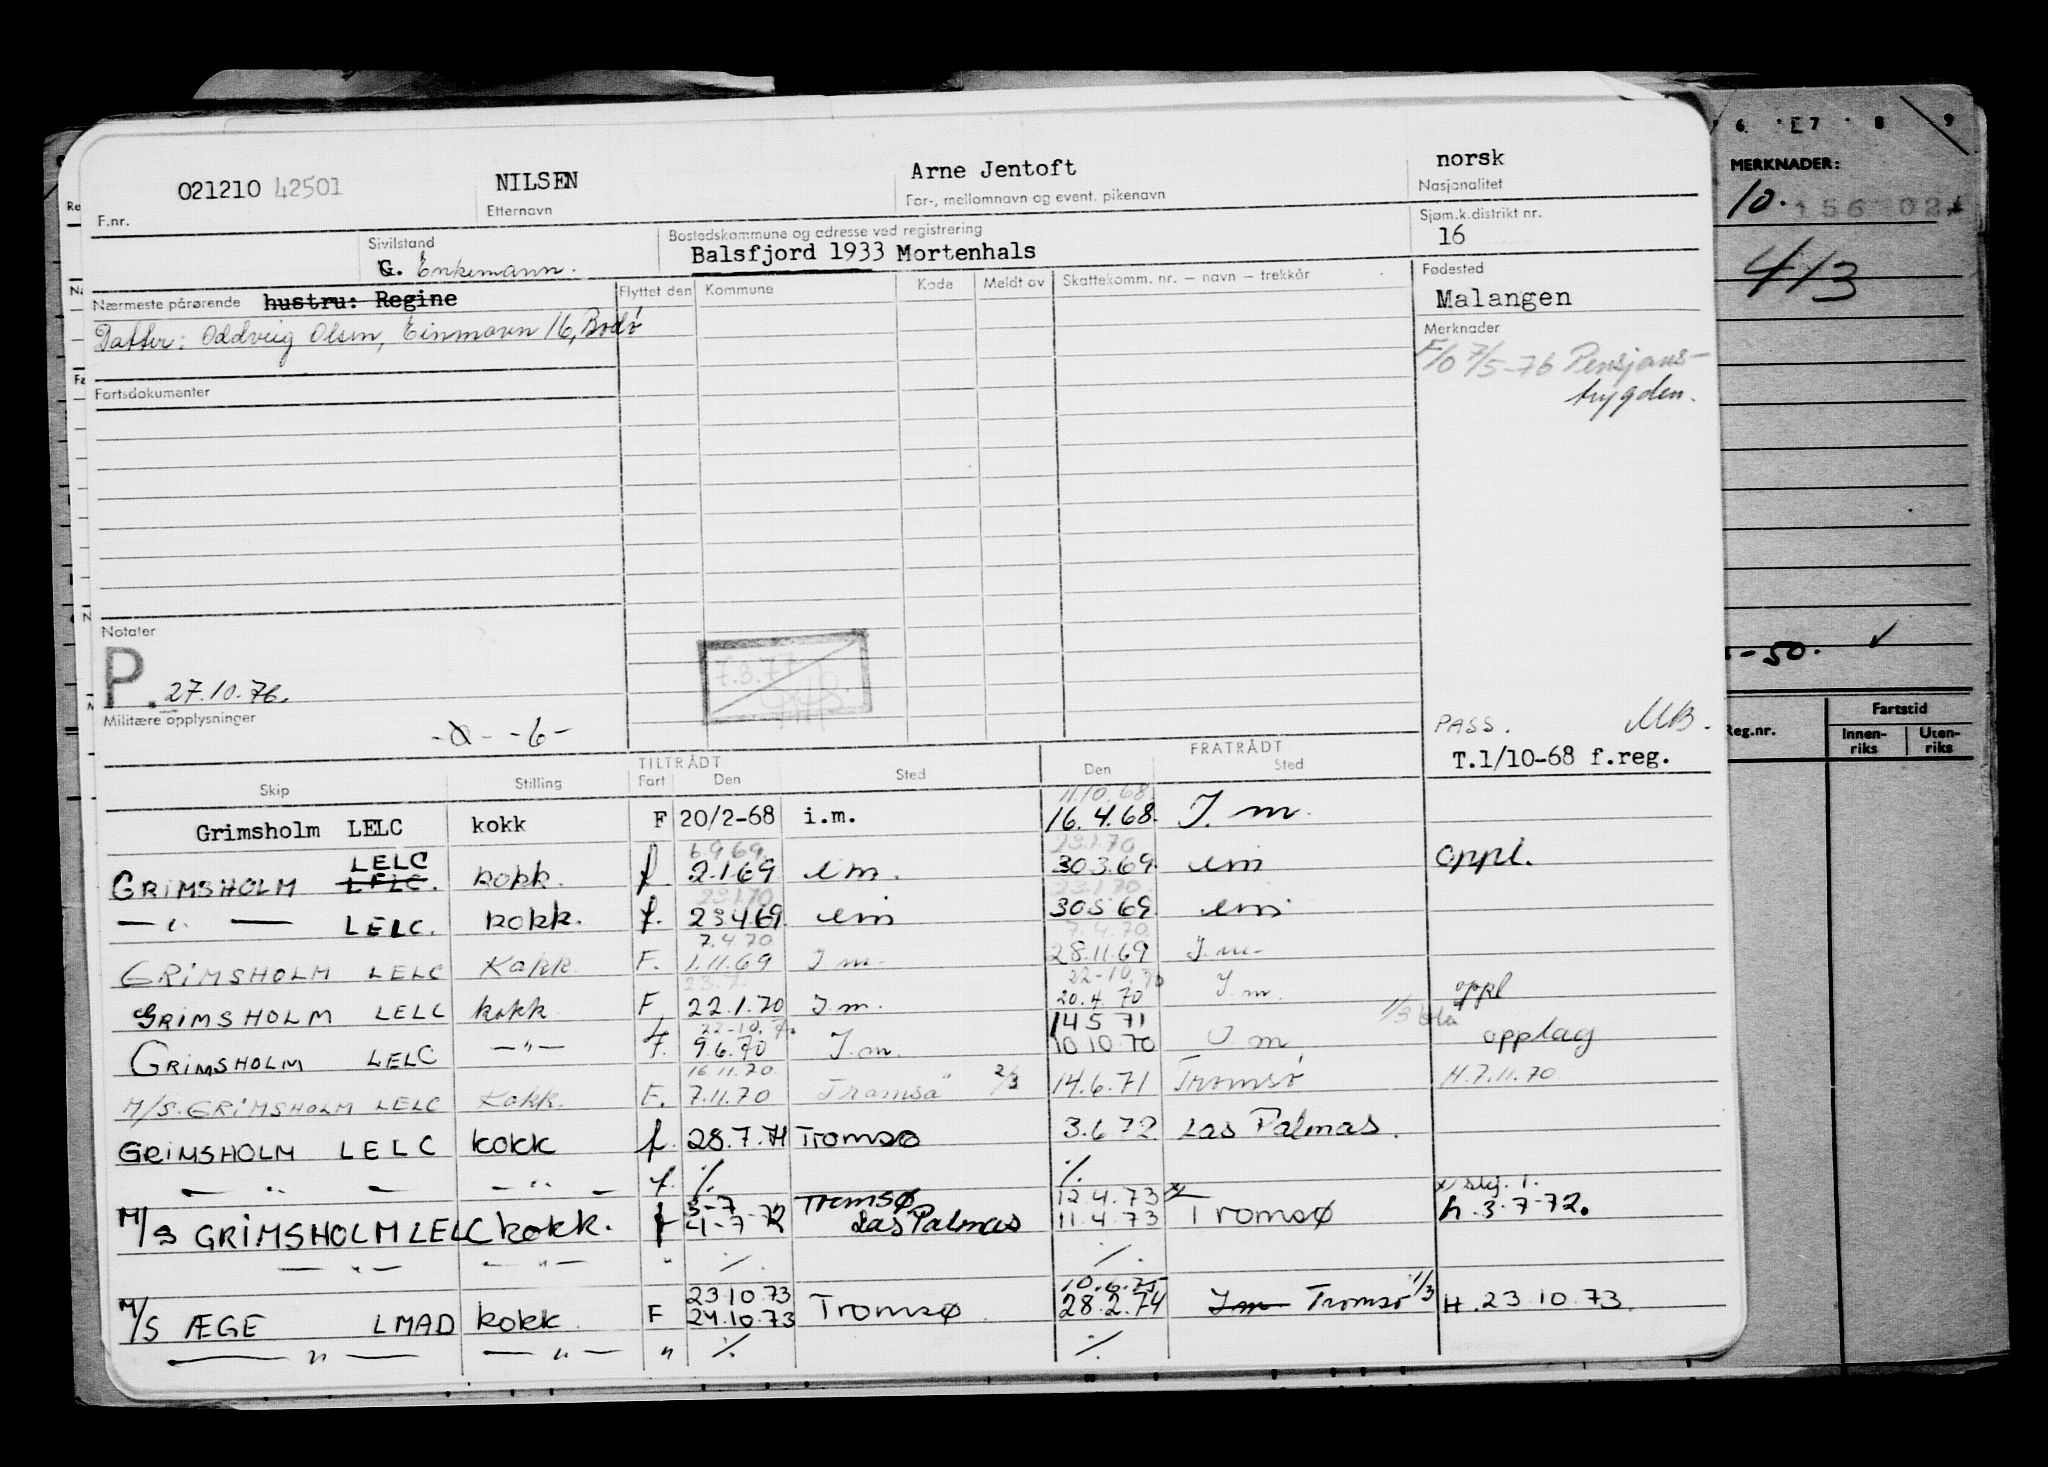 021210 42501 NILSEN Arne Jentoft norsk
F.nr. Etternavn For-, mellomnavn og event. pikenavn Nasjonalitet
Sivilstand Bostedskommune og adresse ved registrering Sjøm.k.distrikt nr.
G. Enkemann. Balsfjord 1933 Mortenhals 16
Nærmeste pårørende hustru: Regine Flyttet den Kommune Kode Meldt av Skattekomm. nr. – navn – trekkår Fødested
Malangen
Datter: Oddveig Olsen, Einmovn 16, Bodø
Merknader
F/O 7/5-76 Pensjons-
trygden.
Fartsdokumenter
Notater
P. 27.10.76.
7.3.77
Militære opplysninger
- 6 -
PASS. MB.
T.1/10-68 f.reg.
TILTRÅDT FRATRÅDT
Skip Stilling Fart Den Sted Den Sted
11.10.68.
Grimsholm LELC kokk F 20/2-68 i.m. 16.4.68. I. m.
LELC 6.9 69 23.1.70
GRIMSHOLM LELC. kokk. f. 2.1.69 i m. 30.3.69. i m oppl.
23.1.70 23.1.70.
— " — LELC. kokk. f. 23.4.69. i m 30.5 69 i m
7.4 70 7.4.70.
GRIMSHOLM LELC Kokk. F. 1.11.69 I m. 28.11.69 I.m.
22-10.70
GRIMSHOLM LELC kokk F 22.1.70 I.m. 20.4.70 I.m. oppl
22-10.70 14 5 71 1/3
GRIMSHOLM LELC —"— F. 9.6.70 I.m. 10 10.70 I.m opplag
16.11.70.
M/S. GRIMSHOLM LELC Kokk. F. 7.11.70 Tromsø 2/3 14.6.71 Tromsø H.7.11.70
GRIMSHOLM LELC kokk f. 28.7.71 Tromsø 3.6 72 Las Palmas.
— " — — " — f. ./. ./.
3-7 Tromsø 12.4.73 x x/ stg. 1.
M/S GRIMSHOLM LELC kokk. f 4-7-72 Las Palmas 11.4.73 Tromsø h. 3-7-72.
— " — — " — " ./. ./.
23 10 73 10.6.75
M/S ÆGE LMAD kokk. F 24.10.73 Tromsø. 28.2.74 I m Tromsø 1/3 H. 23 10 73.
— " — — " — " ./. ./.
6 7 8 9
MERKNADER:
10.
413
- 50. ✓
Reg.nr. Fartstid
Innen-
riks
Uten-
riks